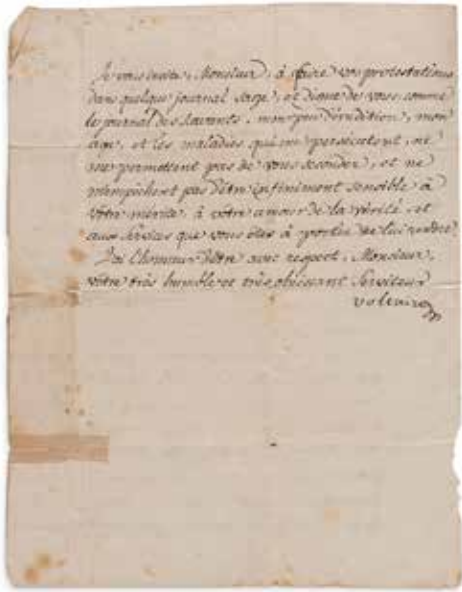 Je vous invite, Monsieur, à faire vos protestations
dans quelque journal sage, et digne de vous comme
le journal des savants, mon peu d'érudition, mon
age, et les maladies qui me persecutent, ne
me permettent pas de vous seconder, et ne
m'empêchent pas d'être infiniment sensible à
votre mérite, à votre amour de la vérité, et
aux services que vous êtes à portée de lui rendre.
J'ai l'honneur d'être avec respect, Monsieur,
votre très humble et très obéissant serviteur
voltaire